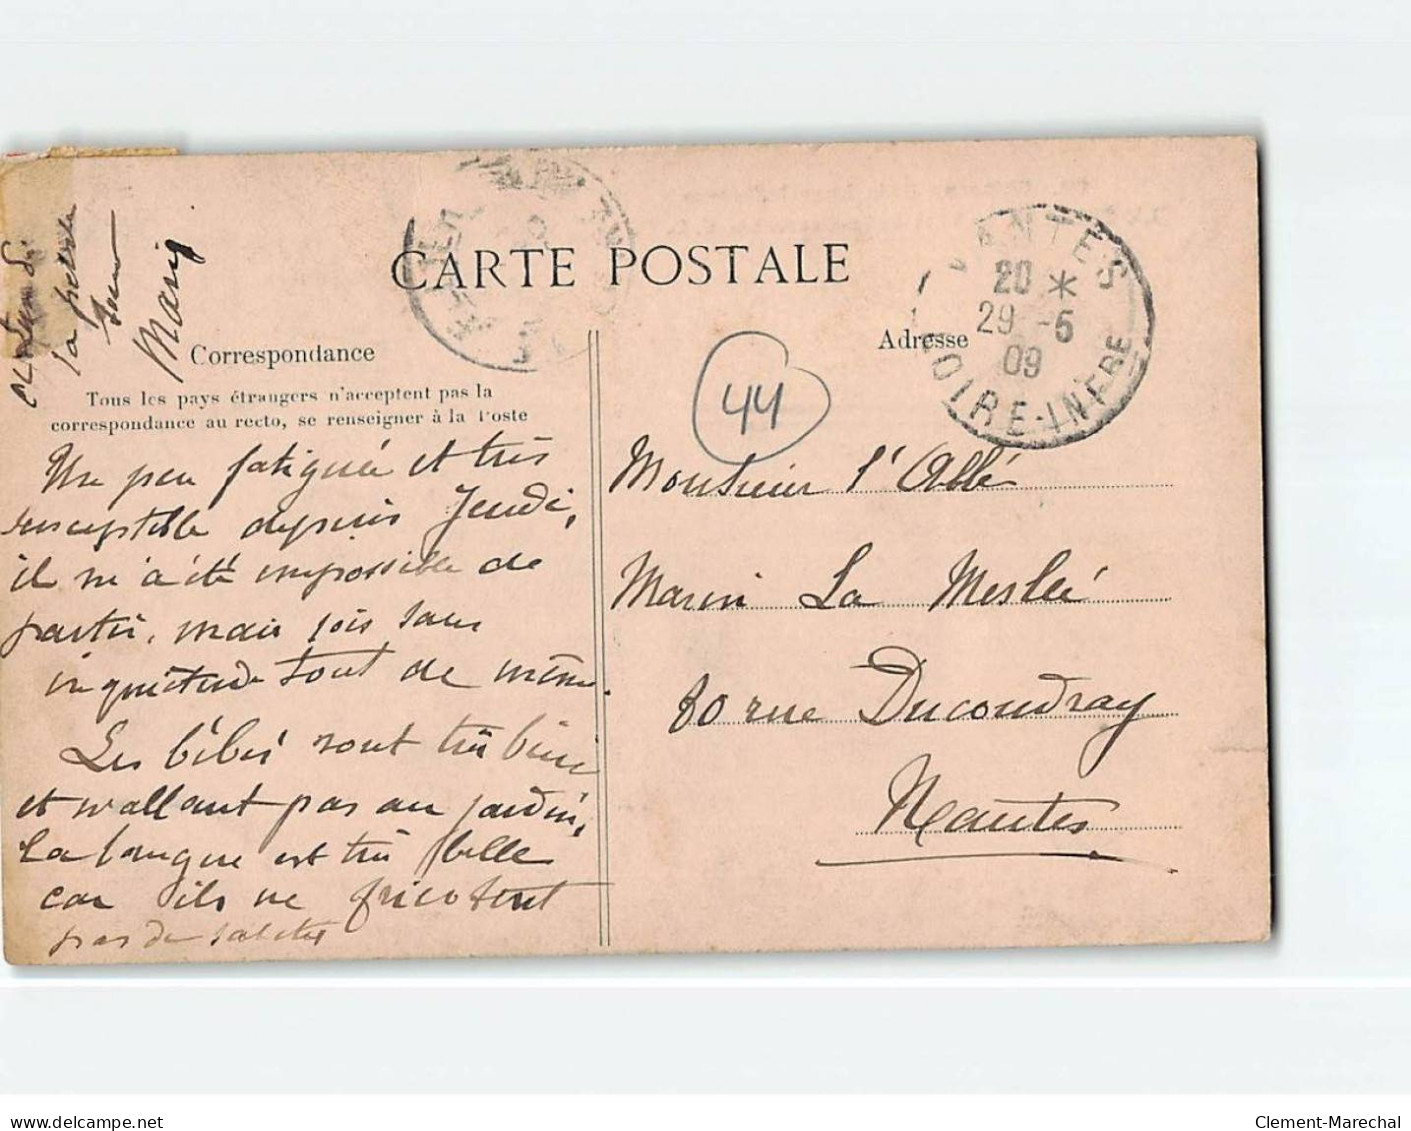 CARTE POSTALE
Correspondance
Tous les pays étrangers n'acceptent pas la
correspondance au recto, se renseigner à la Poste
Adresse
NANTES
20 *
29 -5
09
LOIRE-INFRE
44
Un peu fatiguée et très
susceptible depuis Jeudi,
il m'a été impossible de
partir, mais sois sans
inquiétude tout de même.
Les bébés sont très bien
et n'allant pas au jardin,
la langue est très belle
car ils ne fricotent
pas de saletés
la petite
sœur
Marie
Monsieur l'Abbé
Marin La Meslée
80 rue Ducoudray
Nantes
www.delcampe.net
Clement-Marechal